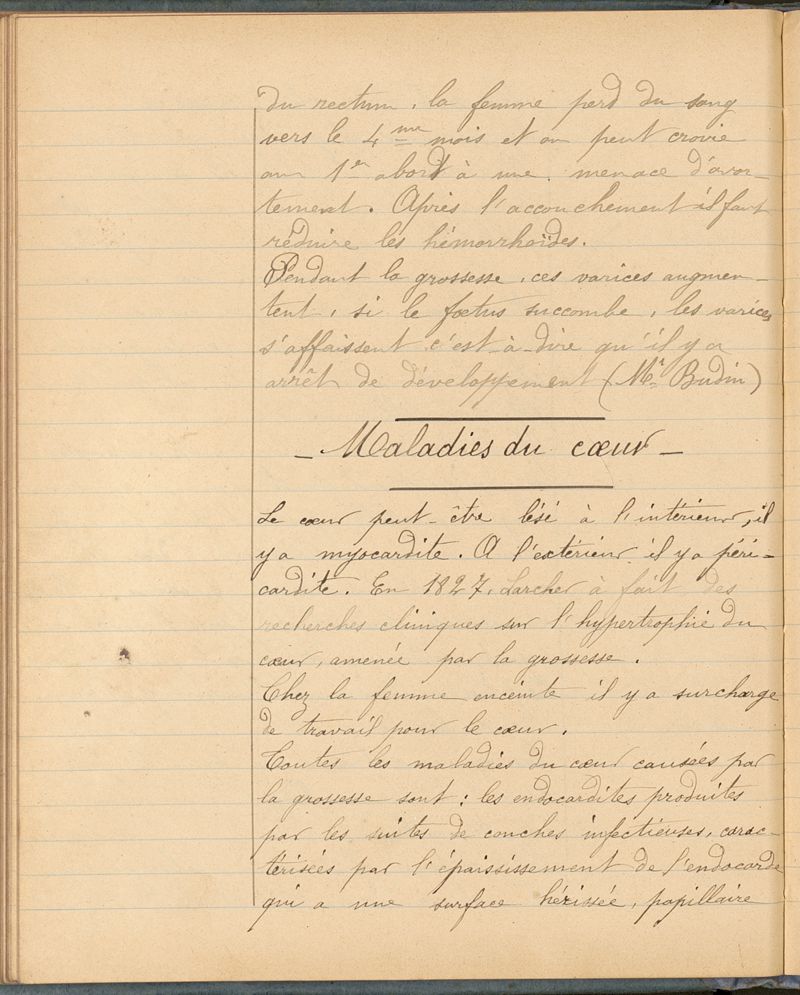 du rectum, la femme perd du sang
vers le 4me mois et on peut croire
au 1er abord à une menace d'avor-
tement. Après l'accouchement il faut
réduire les hémorrhoïdes.
Pendant la grossesse, ces varices augmen-
tent, si le fœtus succombe, les varices
s'affaissent c'est-à-dire qu'il y a
arrêt de développement (Mr. Budin)
- Maladies du cœur -
Le cœur peut-être lésé à l'intérieur, il
y a myocardite. A l'extérieur il y a péri-
cardite. En 1827, Larcher à fait des
recherches cliniques sur l'hypertrophie du
cœur, amenée par la grossesse.
Chez la femme enceinte il y a surcharge
de travail pour le cœur.
Toutes les maladies du cœur causées par
la grossesse sont : les endocardites produites
par les suites de couches infectieuses, carac-
térisées par l'épaississement de l'endocarde
qui a une surface hérissée, papillaire